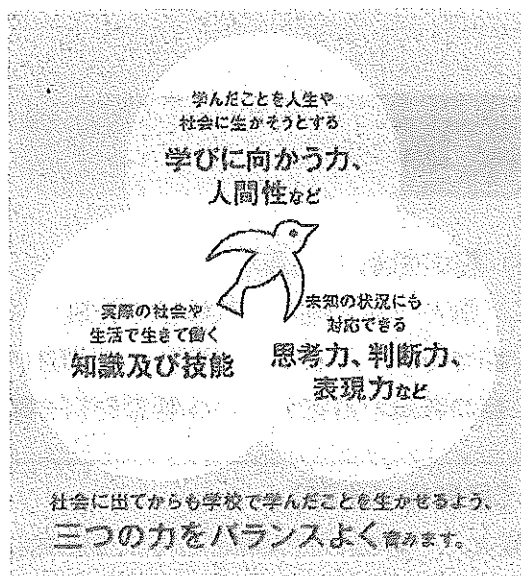 学んだことを人生や
社会に生かそうとする
学びに向かう力、
人間性など
実際の社会や
生活で生きて働く
知識及び技能
未知の状況にも
対応できる
思考力、判断力、
表現力など
社会に出てからも学校で学んだことを生かせるよう、
三つの力をバランスよく育みます。